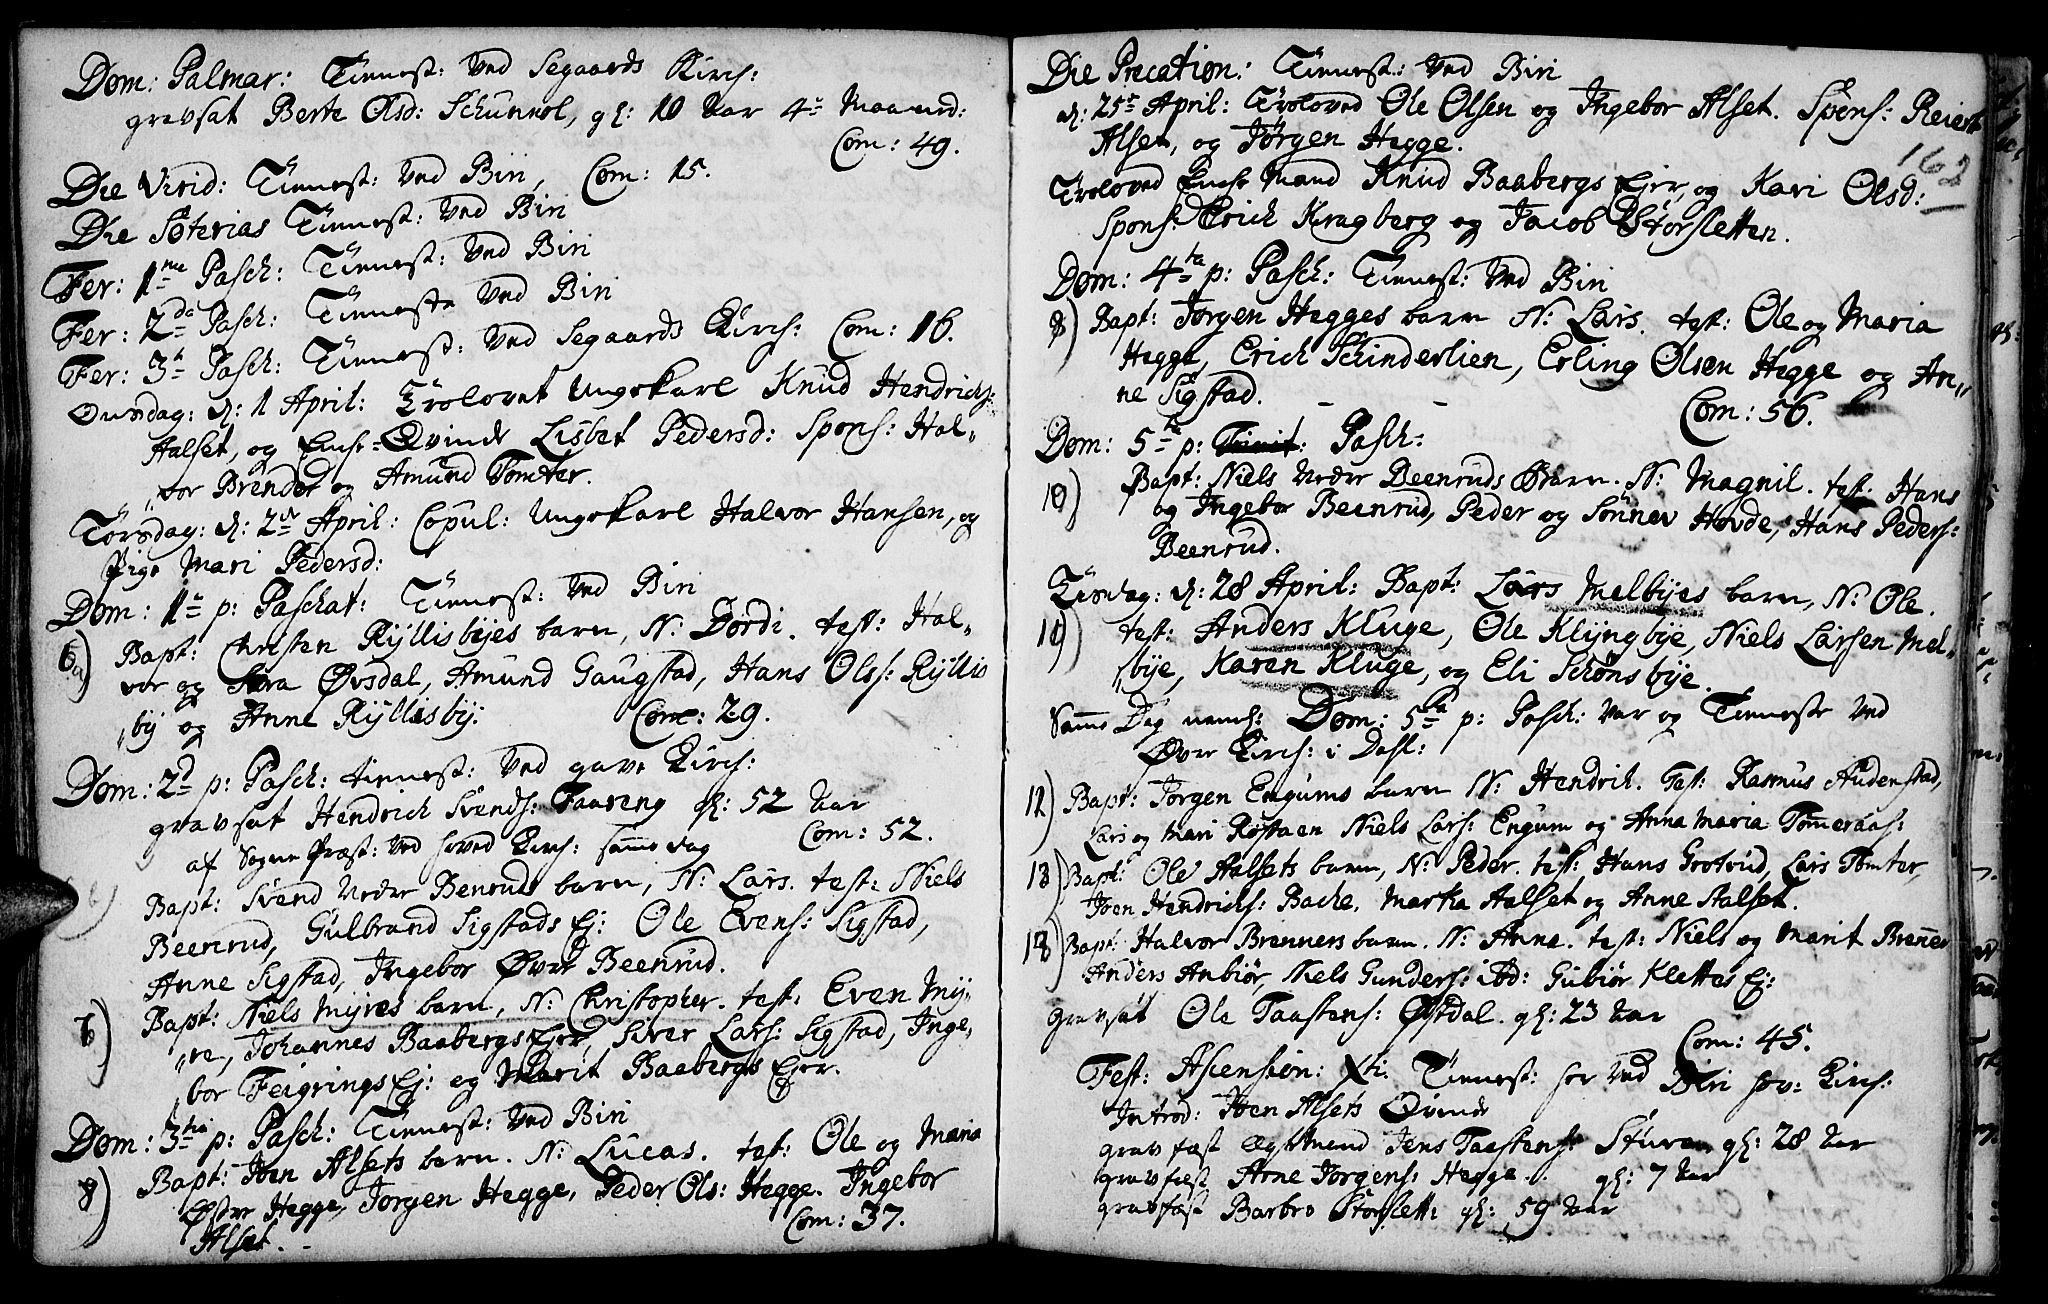 Dom: Palmar: Tienest: Ved Segaards Kirch:
gravsat Berte Olsd: Schunnol, gl: 10 Aar 4 Maaned:
Com: 49.
Die Virid: Tienest: Ved Biri, Com: 15.
Die Soterias Tienest: Ved Biri
Fer: 1 ma Pasch: Tienest: Ved Biri
Fer: 2 da Pasch: Tieneste Ved Biri
Fer: 3 Pasch: Tienest: Ved Segaards Kirch: Com: 16.
Onsdag: d: 1 April: Trolovet Ungekarl Knud Hendrichs:
Aalset, og Qvinde Lisbet Pedersd: Spons: Hal„
„vor Brender og Amund Tomter.
Torsdag: d: 2 April: Copul: Ungekarl Halvor Hansen, og
Pige Mari Pedersd:
Dom: 1 p: Paschat: Tienest: Ved Biri
Bapt: Christen Ryllisbyes barn, N: Dordi. test: Hal„
vor og Øvsdal, Amund Gaugstad, Hans Ols: Ryllis
„by og Anne Ryllisby: Com: 29.
Dom: 2 d p: Pasch: tienest: Ved gave Kirch:
gravsat Hendrich Svends: Faareng gl: 52 Aar
af Sogne Præst: Ved hoved Kirch: samme dag Com: 52.
Bapt: Svend Neder Benruds barn, N: Lars. test: Niels
Beenrud, Gulbrand Sigstads Ej: Ole Evens: Sigstad,
Anne Sigstad, Ingebor Øvre Beenrud.
7) Bapt: Niels Myres barn, N: Christopher. test: Even My„
„re, Johannes Baabergs Ejer, Siver Lars: Sigstad, Inge„
bor Feigrings Ej: og Marit Baabergs Ejer.
Dom: 3 tia p: Pasch: Tienest: Ved Biri
8) Bapt: Joen Alsets barn. N: Lucas. test: Ole og Maria
Østre Hegge, Jorgen Hegge, Peder Ols: Hegge. Ingebor
Alset. Com: 37.
Die Precation: Tienest: Ved Biri
d: 25 April: Troloved Ole Olsen og Ingebor Alset. Spons: Reiert
Alset, og Jørgen Hegge.
162
Troloved Mand Knud Baabergs Ejer, og Kari Olsd:
Spons: Erich Kragberg og Jacob Størsletten.
Dom: 4 ta p: Pasch: Tienest: Ved Biri
9) Bapt: Jorgen Hegges barn N: Lars. test: Ole og Maria
Hegge, Erich Schinderlien, Erling Olsen Hegge og An„
ne Sigstad.
Com: 56.
Dom: 5 p: Trinit: Pasch:
10) Bapt: Niels Neder Beenruds Barn. N: Magnil. test. Hans
og Ingebor Beenrud, Peder og Sønnev Hovde, Hans Peders:
Beenrud.
Tirsdag: d: 28 April: Bapt: Lars Melbyes barn, N: Ole.
11) test: Anders Kluge, Ole Klyngbye, Niels Larsen Mel„
„bye, Karen Kluge, og Eli Schønsbye.
Samme Dag neml: Dom: 5 ta p: Pasch: Var og Tieneste Ved
Øvre Kirch: i
12) Bapt: Jorgen Engums barn N: Hendrich. Test: Rasmus Audenstad,
Lars og Mari Røstaen Niels Lars: Engum og Anna Maria Tømeraas:
13) Bapt: Ole Aalsets barn, N: Peder. test: Hans Grotrud, Lars Tomter,
Joen Hendrichs: Bache, Marka Aalset og Anne Aalset.
Bapt: Halvor Brenners barn. N: Anna. test: Niels og Marit Brener
Anders Anbiør, Niels Gunders: ibd: Gubiør Klettes Ej:
Gravsat Ole Taastens: Østdal. gl: 23 Aar
Com: 45.
Fest: Ascension: Xti: Tienest: her Ved Biri hov: Kirch:
Introd: Joen Alsets Qvinde
gravfæst Ægtemand Jens Taastens: Sturen gl: 28 Aar
gravfæst Arne Jorgens: Hegge. gl: 7 Aar
gravfæst Barbro Storslett: gl: 59 Aar